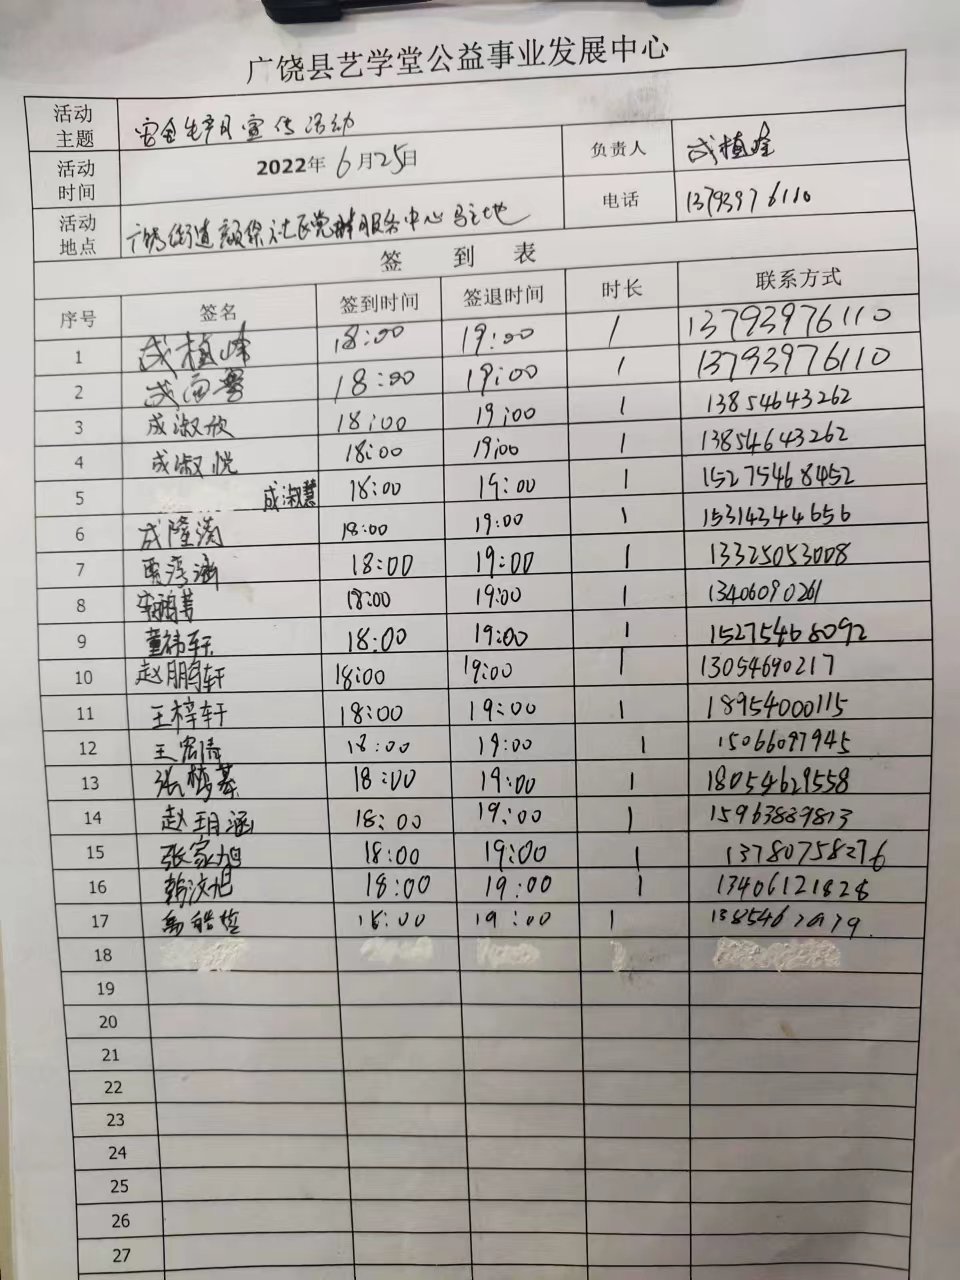 广饶县艺学堂公益事业发展中心
活动主题 安全生产月宣传活动
活动时间 2022年6月25日 负责人 成植峰
电话 13793976110
活动地点 广饶街道颜徐社区党群服务中心
签到表
序号 签名 签到时间 签退时间 时长 联系方式
1 成植峰 18:00 19:00 1 13793976110
2 18:00 19:00 1 13793976110
3 成淑欣 18:00 19:00 1 13854643262
4 成淑悦 18:00 19:00 1 13854643262
5 成淑慧 18:00 19:00 1 15275468452
6 18:00 19:00 1 15314344656
7 18:00 19:00 1 13325053008
8 18:00 19:00 1 13406090261
9 董祎轩 18:00 19:00 1 15275468092
10 赵鹏轩 18:00 19:00 1 13054690217
11 王梓轩 18:00 19:00 1 18954000115
12 18:00 19:00 1 15066097945
13 张梦慕 18:00 19:00 1 18054629558
14 赵玥涵 18:00 19:00 1 15963889813
15 张家旭 18:00 19:00 1 13780758276
16 韩汶旭 18:00 19:00 1 13406121828
17 18:00 19:00 1
18
19
20
21
22
23
24
25
26
27